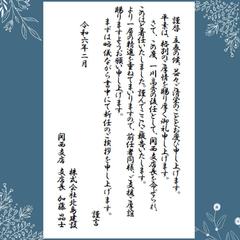 謹啓 立春の候、益々ご清栄のこととお慶び申し上げます。
平素は、格別のご厚情を賜り厚く御礼申し上げます。
さて、この度、一川高亮の後任として、関西支店長を命ぜられ
このほど着任いたしました。謹んでここにご報告いたします。
より一層の精進を重ねてまいりますので、前任者同様、ご支援ご厚誼
賜りますようお願い申し上げます。
まずは略儀ながら書中にて新任のご挨拶を申し上げます。
謹言
令和六年二月
株式会社北島建設
関西支店 支店長 加藤晶士